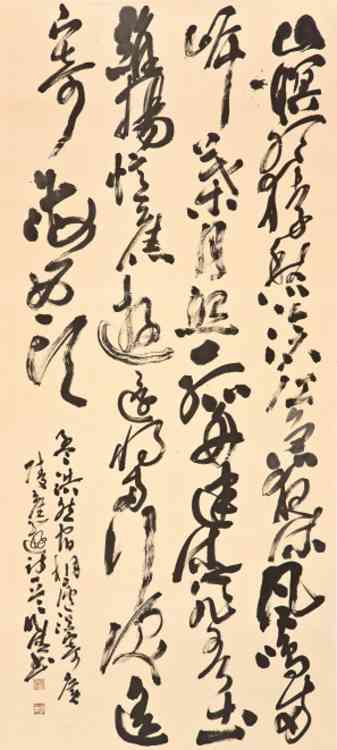 山暝聽猿愁滄江急夜流風鳴兩
岸葉月照一孤舟建德非吾土
維揚憶舊遊還將兩行淚遙
寄海西頭
孟浩然宿桐廬江寄廣
陵舊遊詩